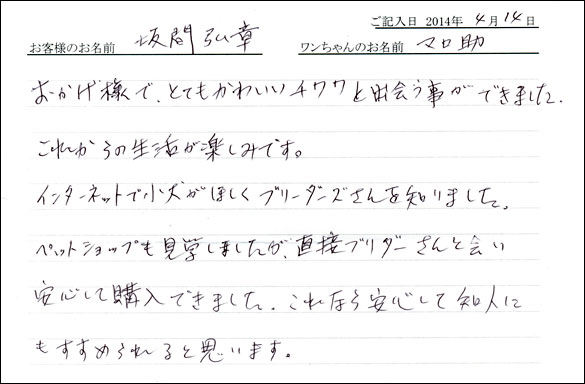 ご記入日 2014年 4月 14日
お客様のお名前 坂間 弘章 ワンちゃんのお名前 マロ助
おかげ様で、とてもかわいいチワワと出会う事ができました。
これからの生活が楽しみです。
インターネットで小犬がほしくブリーダーズさんを知りました。
ペットショップも見学しましたが、直接ブリダーさんと会い
安心して購入できました。これなら安心して知人に
もすすめられると思います。